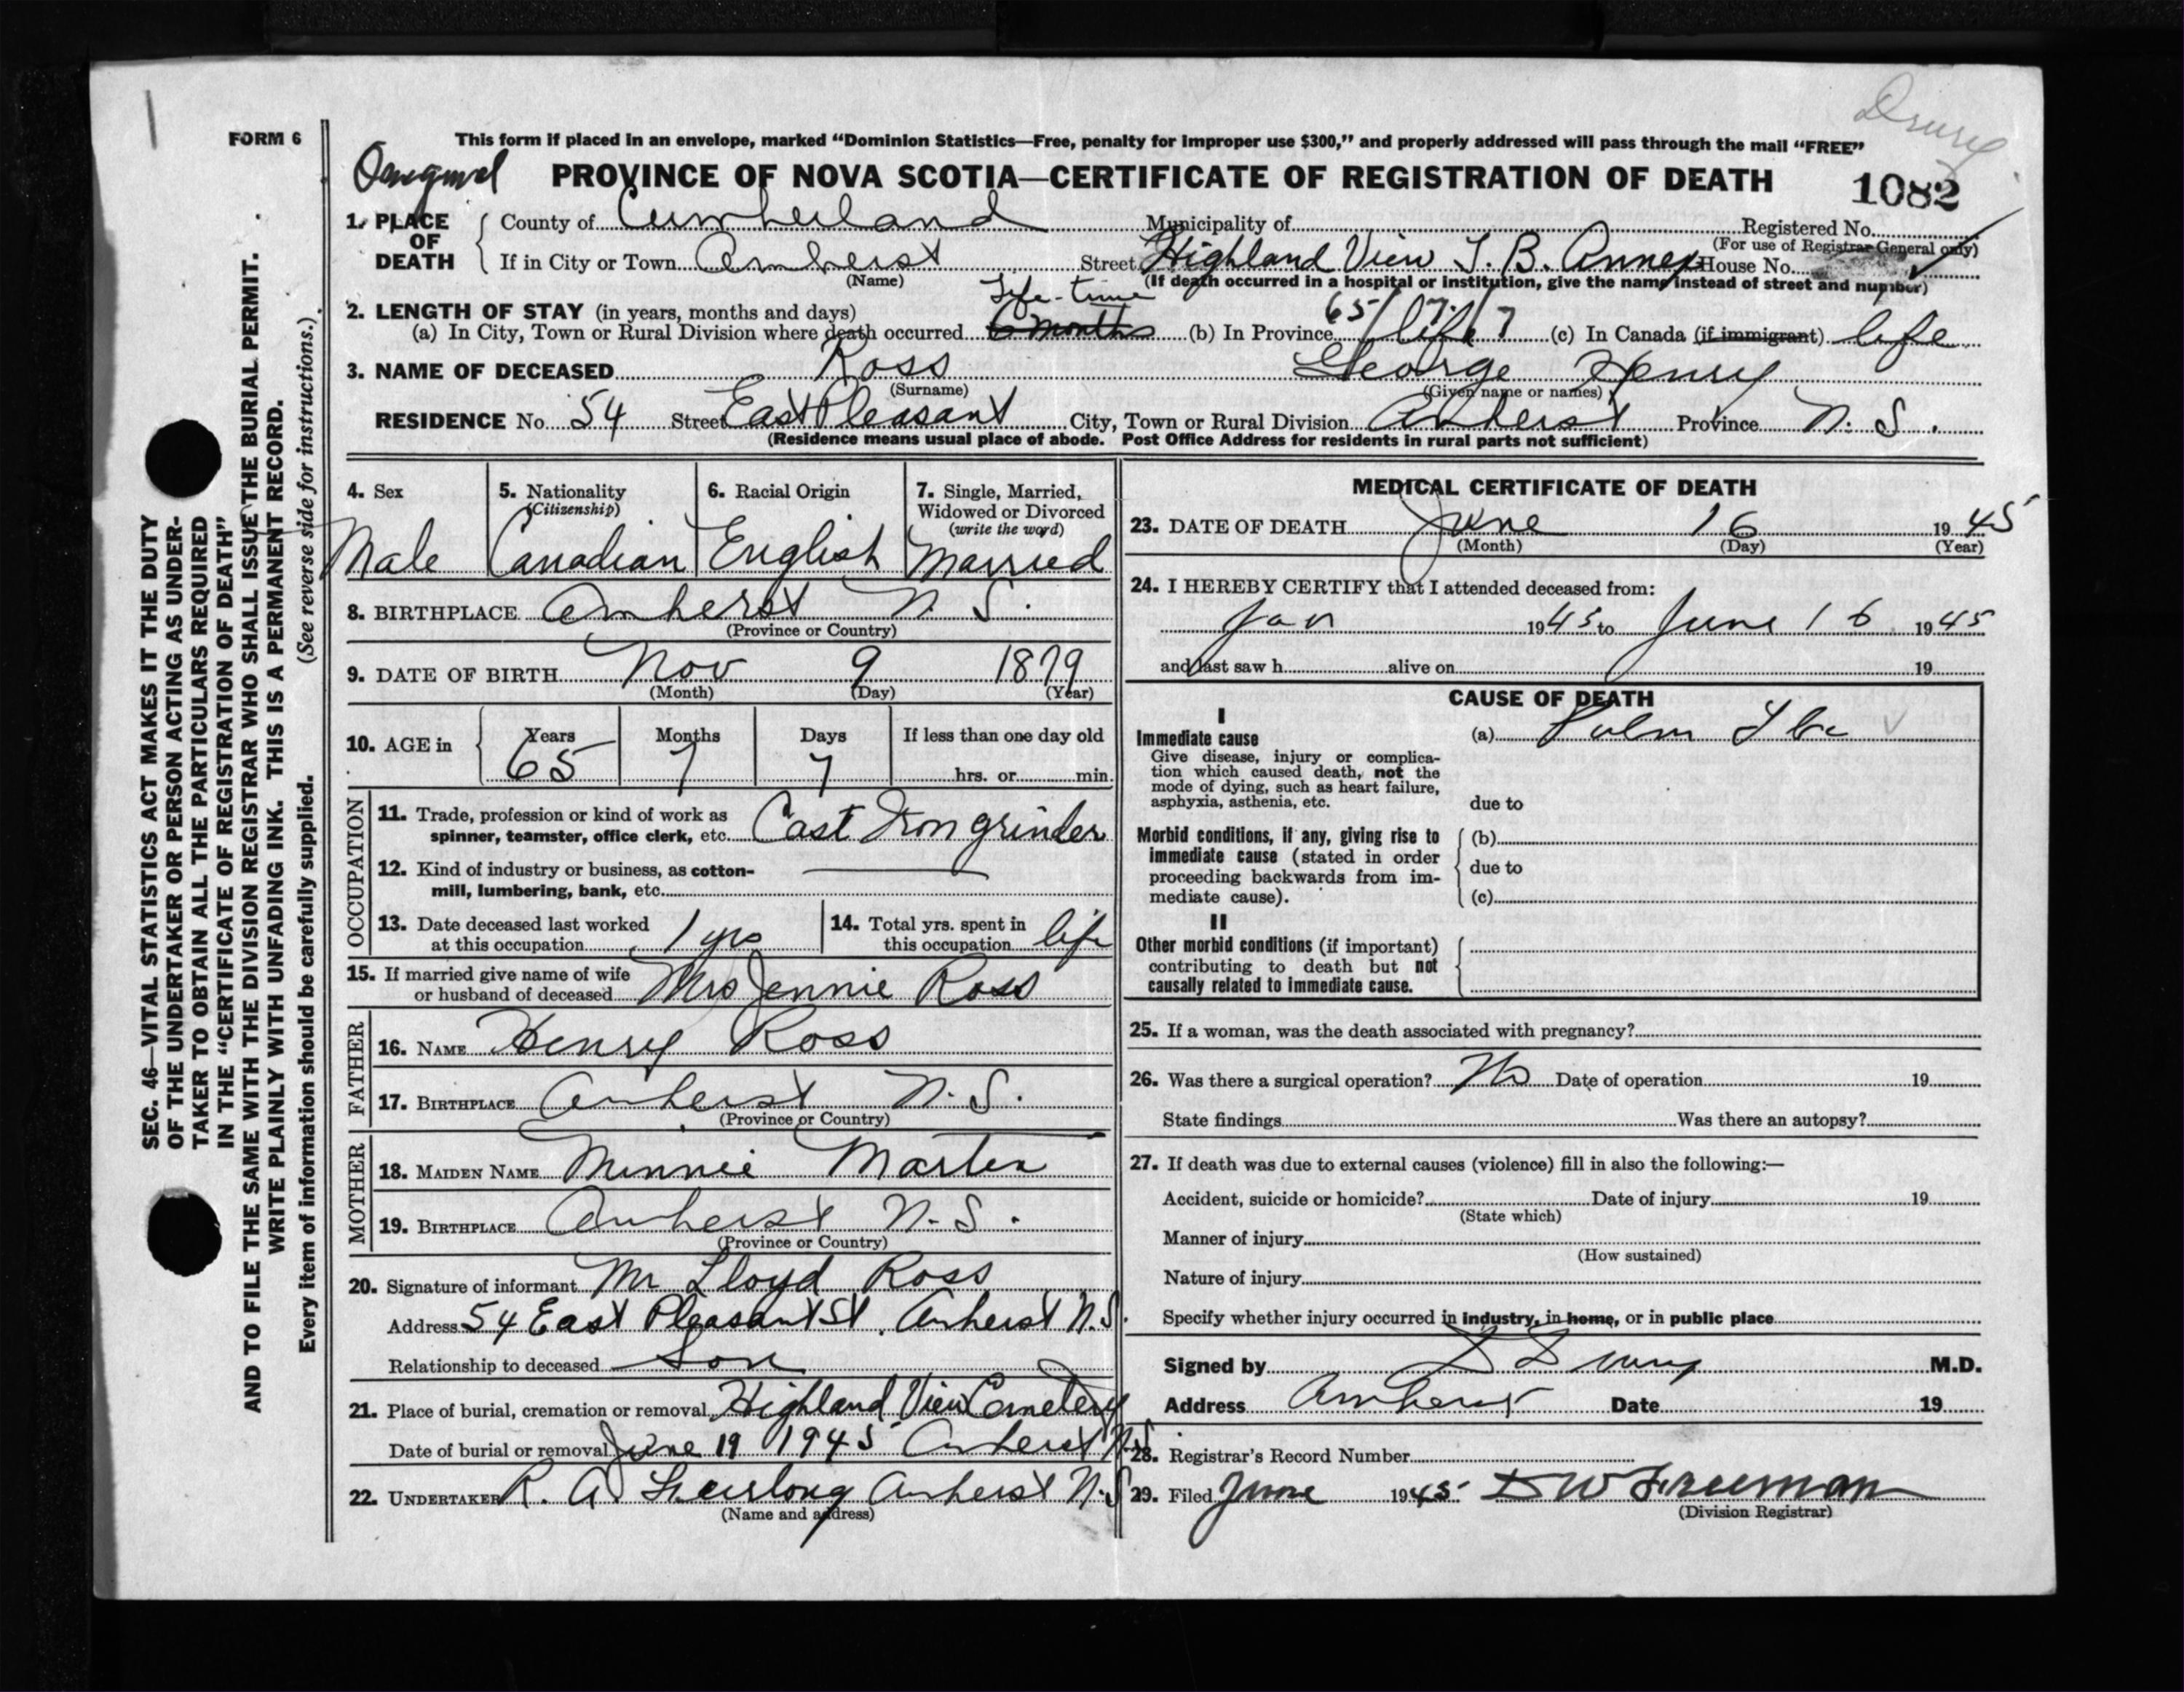 Drury
FORM 6
This form if placed in an envelope, marked “Dominion Statistics—Free, penalty for improper use $300,” and properly addressed will pass through the mail “FREE”
PROVINCE OF NOVA SCOTIA—CERTIFICATE OF REGISTRATION OF DEATH
1082
1. PLACE OF DEATH
County of Cumberland Municipality of Registered No.
(For use of Registrar General only)
If in City or Town Amherst Street Highland View T. B. Annex House No.
(Name) (If death occurred in a hospital or institution, give the name instead of street and number)
Life-time 65/7/7
2. LENGTH OF STAY (in years, months and days)
(a) In City, Town or Rural Division where death occurred 6 months (b) In Province life (c) In Canada (if immigrant) life
3. NAME OF DECEASED Ross George Henry
(Surname) (Given name or names)
RESIDENCE No. 54 Street East Pleasant City, Town or Rural Division Amherst Province N. S.
(Residence means usual place of abode. Post Office Address for residents in rural parts not sufficient)
4. Sex
Male
5. Nationality
(Citizenship)
Canadian
6. Racial Origin
English
7. Single, Married,
Widowed or Divorced
(write the word)
Married
8. BIRTHPLACE Amherst N. S.
(Province or Country)
9. DATE OF BIRTH Nov 9 1879
(Month) (Day) (Year)
10. AGE in
Years Months Days If less than one day old
65 7 7 hrs. or min.
OCCUPATION
11. Trade, profession or kind of work as
spinner, teamster, office clerk, etc. Cast Iron grinder
12. Kind of industry or business, as cotton-
mill, lumbering, bank, etc.
13. Date deceased last worked
at this occupation 1 yrs
14. Total yrs. spent in
this occupation life
15. If married give name of wife
or husband of deceased Mrs Jennie Ross
FATHER
16. NAME Henry Ross
17. BIRTHPLACE Amherst N. S.
(Province or Country)
MOTHER
18. MAIDEN NAME Minnie Martin
19. BIRTHPLACE Amherst N. S.
(Province or Country)
20. Signature of informant Mr Lloyd Ross
Address 54 East Pleasant St. Amherst N.S.
Relationship to deceased Son
21. Place of burial, cremation or removal Highland View Cemetery
Date of burial or removal June 19 1945 Amherst N.S.
22. UNDERTAKER R. A. Amherst N.S
(Name and address)
MEDICAL CERTIFICATE OF DEATH
23. DATE OF DEATH June 16 1945
(Month) (Day) (Year)
24. I HEREBY CERTIFY that I attended deceased from:
Jan 1945 to June 16 1945
and last saw h alive on 19
CAUSE OF DEATH
I
Immediate cause (a) Pulm Tbc
Give disease, injury or complica-
tion which caused death, not the
mode of dying, such as heart failure,
asphyxia, asthenia, etc.
due to
Morbid conditions, if any, giving rise to (b)
immediate cause (stated in order
proceeding backwards from im- due to
mediate cause). (c)
II
Other morbid conditions (if important)
contributing to death but not
causally related to immediate cause.
25. If a woman, was the death associated with pregnancy?
26. Was there a surgical operation? No Date of operation 19
State findings Was there an autopsy?
27. If death was due to external causes (violence) fill in also the following:—
Accident, suicide or homicide? Date of injury 19
(State which)
Manner of injury
(How sustained)
Nature of injury
Specify whether injury occurred in industry, in home, or in public place
Signed by D Drury M.D.
Address Amherst Date 19
28. Registrar's Record Number
29. Filed June 1945 D W Freeman
(Division Registrar)
SEC. 46—VITAL STATISTICS ACT MAKES IT THE DUTY
OF THE UNDERTAKER OR PERSON ACTING AS UNDER-
TAKER TO OBTAIN ALL THE PARTICULARS REQUIRED
IN THE “CERTIFICATE OF REGISTRATION OF DEATH”
AND TO FILE THE SAME WITH THE DIVISION REGISTRAR WHO SHALL ISSUE THE BURIAL PERMIT.
WRITE PLAINLY WITH UNFADING INK. THIS IS A PERMANENT RECORD.
Every item of information should be carefully supplied. (See reverse side for instructions.)